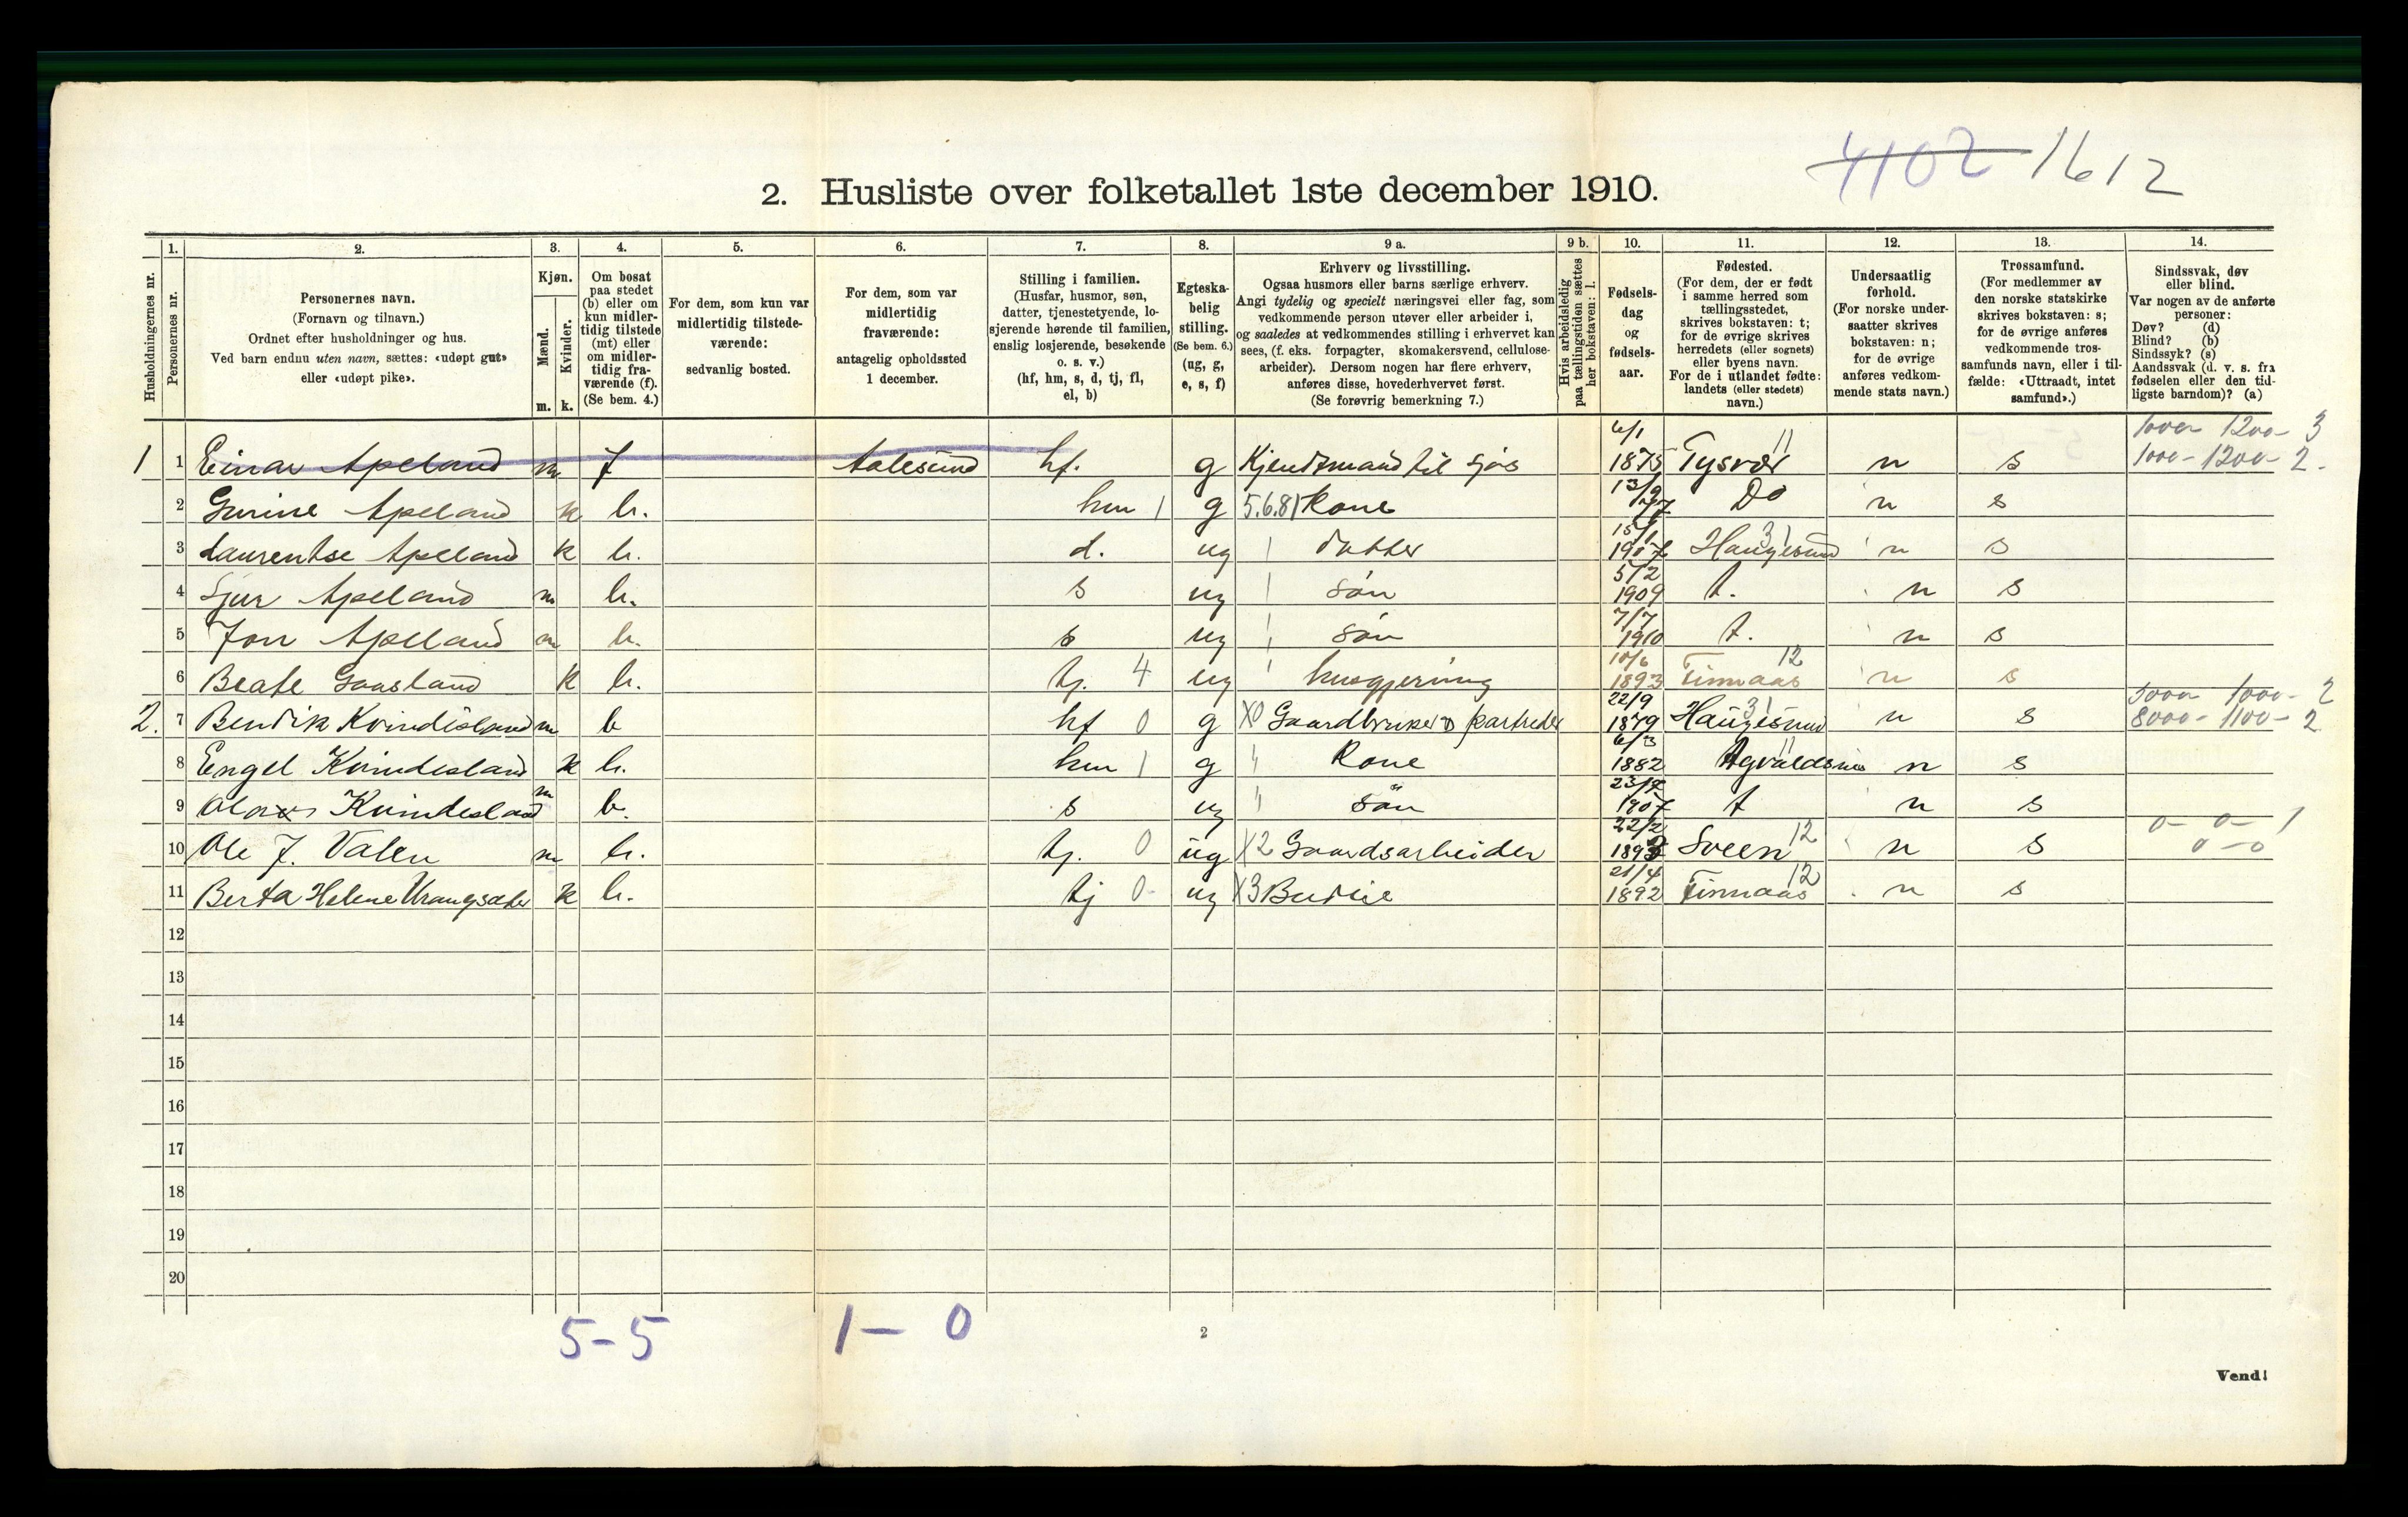 4102 1612
2. Husliste over folketallet 1ste december 1910.
Husholdningernes nr.
1.
Personernes nr.
2.
Personernes navn.
(Fornavn og tilnavn.)
Ordnet efter husholdninger og hus.
Ved barn endnu uten navn, sættes: «udøpt gut»
eller «udøpt pike».
3.
Kjøn.
Mænd.
Kvinder.
m. k.
4.
Om bosat
paa stedet
(b) eller om
kun midler-
tidig tilstede
(mt) eller
om midler-
tidig fra-
værende (f).
(Se bem. 4.)
5.
For dem, som kun var
midlertidig tilstede-
værende:
sedvanlig bosted.
6.
For dem, som var
midlertidig
fraværende:
antagelig opholdssted
1 december.
7.
Stilling i familien.
(Husfar, husmor, søn,
datter, tjenestetyende, lo-
sjerende hørende til familien,
enslig losjerende, besøkende
o. s. v.)
(hf, hm, s, d, tj, fl,
el, b)
8.
Egteska-
belig
stilling.
(Se bem. 6.)
(ug, g,
e, s, f)
9 a.
Erhverv og livsstilling.
Ogsaa husmors eller barns særlige erhverv.
Angi tydelig og specielt næringsvei eller fag, som
vedkommende person utøver eller arbeider i,
og saaledes at vedkommendes stilling i erhvervet kan
sees, (f. eks. forpagter, skomakersvend, cellulose-
arbeider). Dersom nogen har flere erhverv,
anføres disse, hovederhvervet først.
(Se forøvrig bemerkning 7.)
9 b.
Hvis arbeidsledig
paa tællingstiden sættes
her bokstaven: l.
10.
Fødsels-
dag
og
fødsels-
aar.
11.
Fødested.
(For dem, der er født
i samme herred som
tællingsstedet,
skrives bokstaven: t;
for de øvrige skrives
herredets (eller sognets)
eller byens navn.
For de i utlandet fødte:
landets (eller stedets)
navn.)
12.
Undersaatlig
forhold.
(For norske under-
saatter skrives
bokstaven: n;
for de øvrige
anføres vedkom-
mende stats navn.)
13.
Trossamfund.
(For medlemmer av
den norske statskirke
skrives bokstaven: s;
for de øvrige anføres
vedkommende tros-
samfunds navn, eller i til-
fælde: «Uttraadt, intet
samfund».)
14.
Sindssvak, døv
eller blind.
Var nogen av de anførte
personer:
Døv? (d)
Blind? (b)
Sindssyk? (s)
Aandssvak (d. v. s. fra
fødselen eller den tid-
ligste barndom)? (a)
1 1 Einar Apeland m f Aalesund hf. g Kjendtmand til sjøs 6/1 1875 Tysvær 11 n s 1200- 3 1000- 1200- 2.
2 Gurine Apeland k b. hm 1 g 5.6.81 Kone 13/9 Do n s
3 Laurentse Apeland k b. d. ug datter 15/1 1907 Haugesund 31 n s
4 Sjur Apeland m b. s ug søn 5/2 1909 t. n s
5 Jon Apeland m b. s ug søn 7/7 1910 t. n s
6 Beate Gaasland k b. tj. 4 ug husgjerning 10/6 1893 Finnaas 12 n s
2. 7 Bendik Kvindesland m b hf 0 g X0 Gaardbruker & partreder 22/9 1879 Haugesund 31 n s 1000- 2 8000- 1100- 2
8 Engel Kvindesland k b. hm 1 g " Kone 6/3 1882 Agvaldsnes 11 n s
9 Kvindesland m b. s ug " søn 1907 t n s
10 Ole J. Valen m b. tj. 0 ug X2 Gaardsarbeider 22/2 Sveen 12 n s 0- 0- 1 0-0
11 Berta Helene Vrangsæter k b. tj 0- ug X3 Budeie 21/4 1892 Finnaas 12 n s
12
13
14
15
16
17
18
19
20
5-5 1- 0
2
Vend!